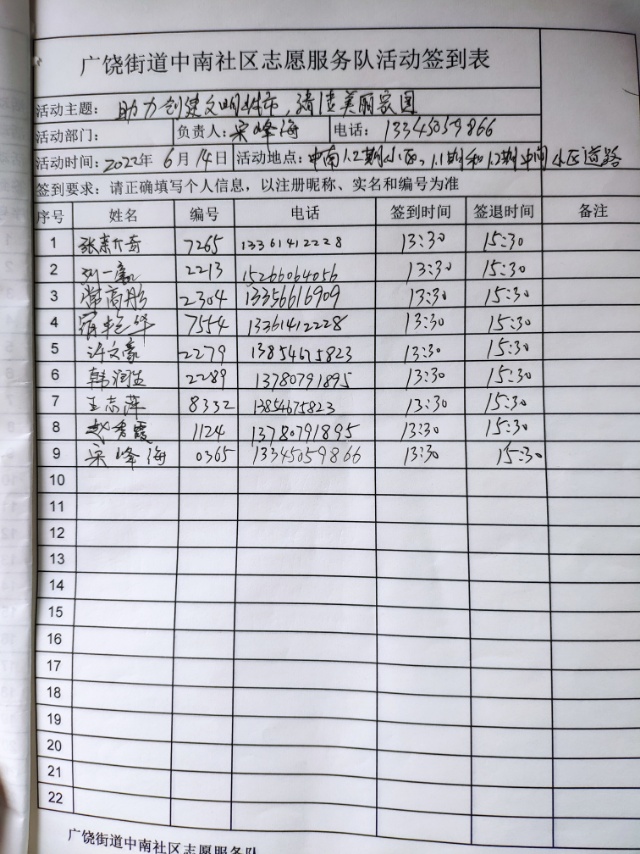 广饶街道中南社区志愿服务队活动签到表
活动主题: 助力创建文明城市,清洁美丽家园
活动部门: 负责人: 宋峰海 电话: 13345059866
活动时间: 2022年6月14日 活动地点: 中南1.2期小区、1.1期和1.2期中间小区道路
签到要求:请正确填写个人信息,以注册昵称、实名和编号为准
序号 姓名 编号 电话 签到时间 签退时间 备注
1 7265 13361412228 13:30 15:30
2 刘一鑫 2213 15266064056 13:30 15:30
3 常高彤 2304 13356616909 13:30 15:30
4 宿艳华 7554 13361412228 13:30 15:30
5 许文豪 2279 13854675823 13:30 15:30
6 韩润生 2289 13780791895 13:30 15:30
7 王志萍 8332 13854675823 13:30 15:30
8 赵秀霞 1124 13780791895 13:30 15:30
9 宋峰海 0365 13345059866 13:30 15:30
10
11
12
13
14
15
16
17
18
19
20
21
22
广饶街道中南社区志愿服务队